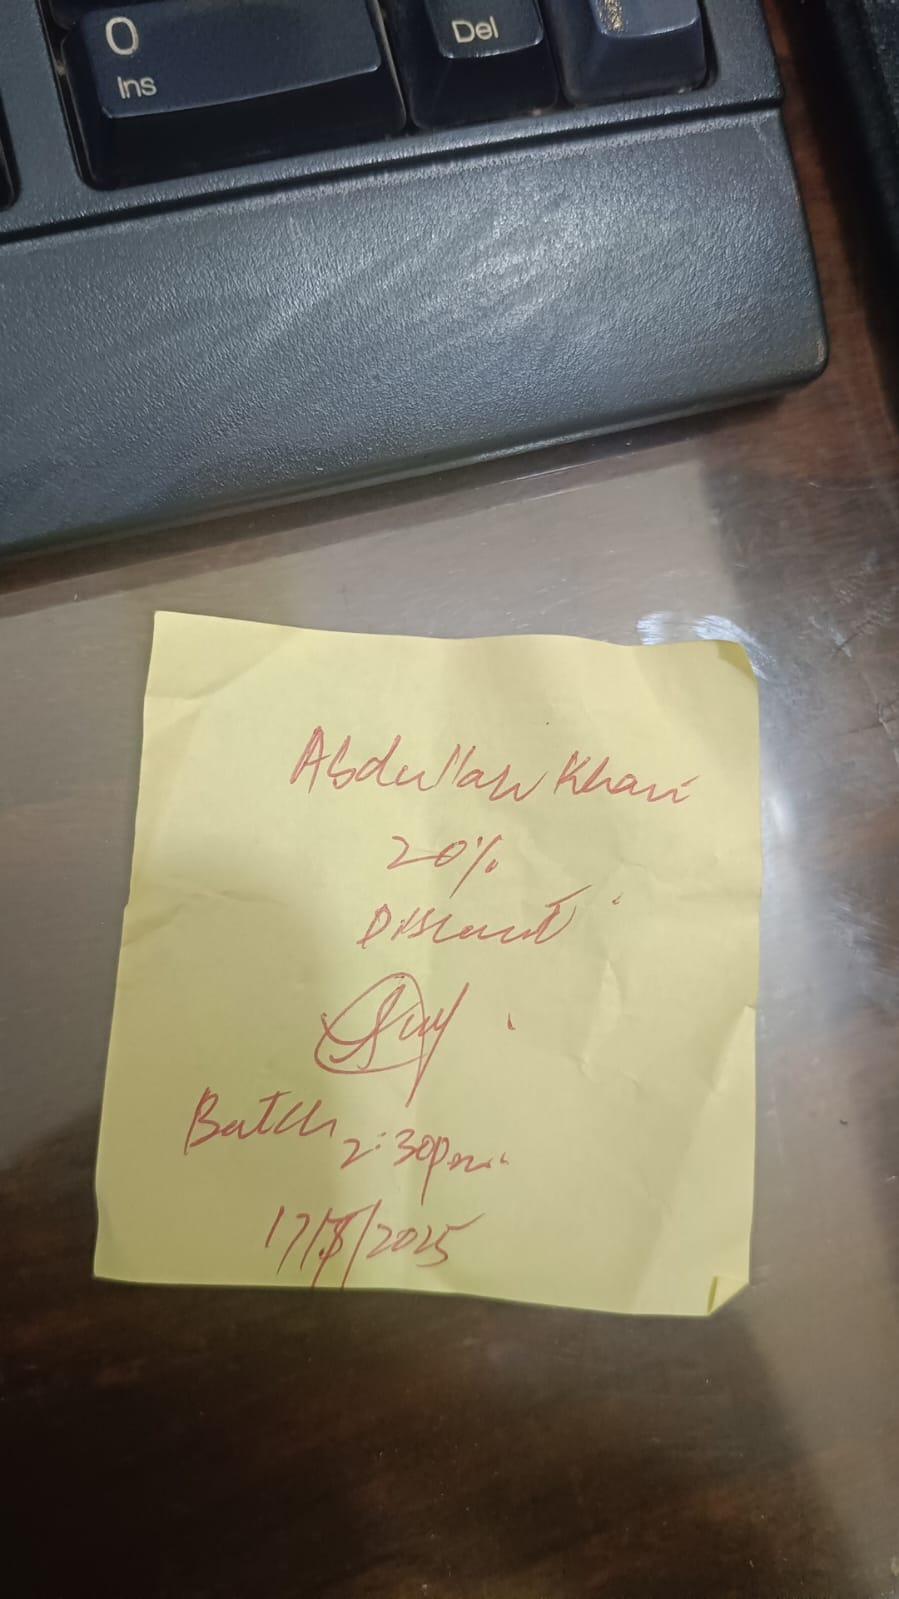 0
Ins
Del
Abdullah Khan
20%
Discount
Batch 2:30pm.
17/8/2025